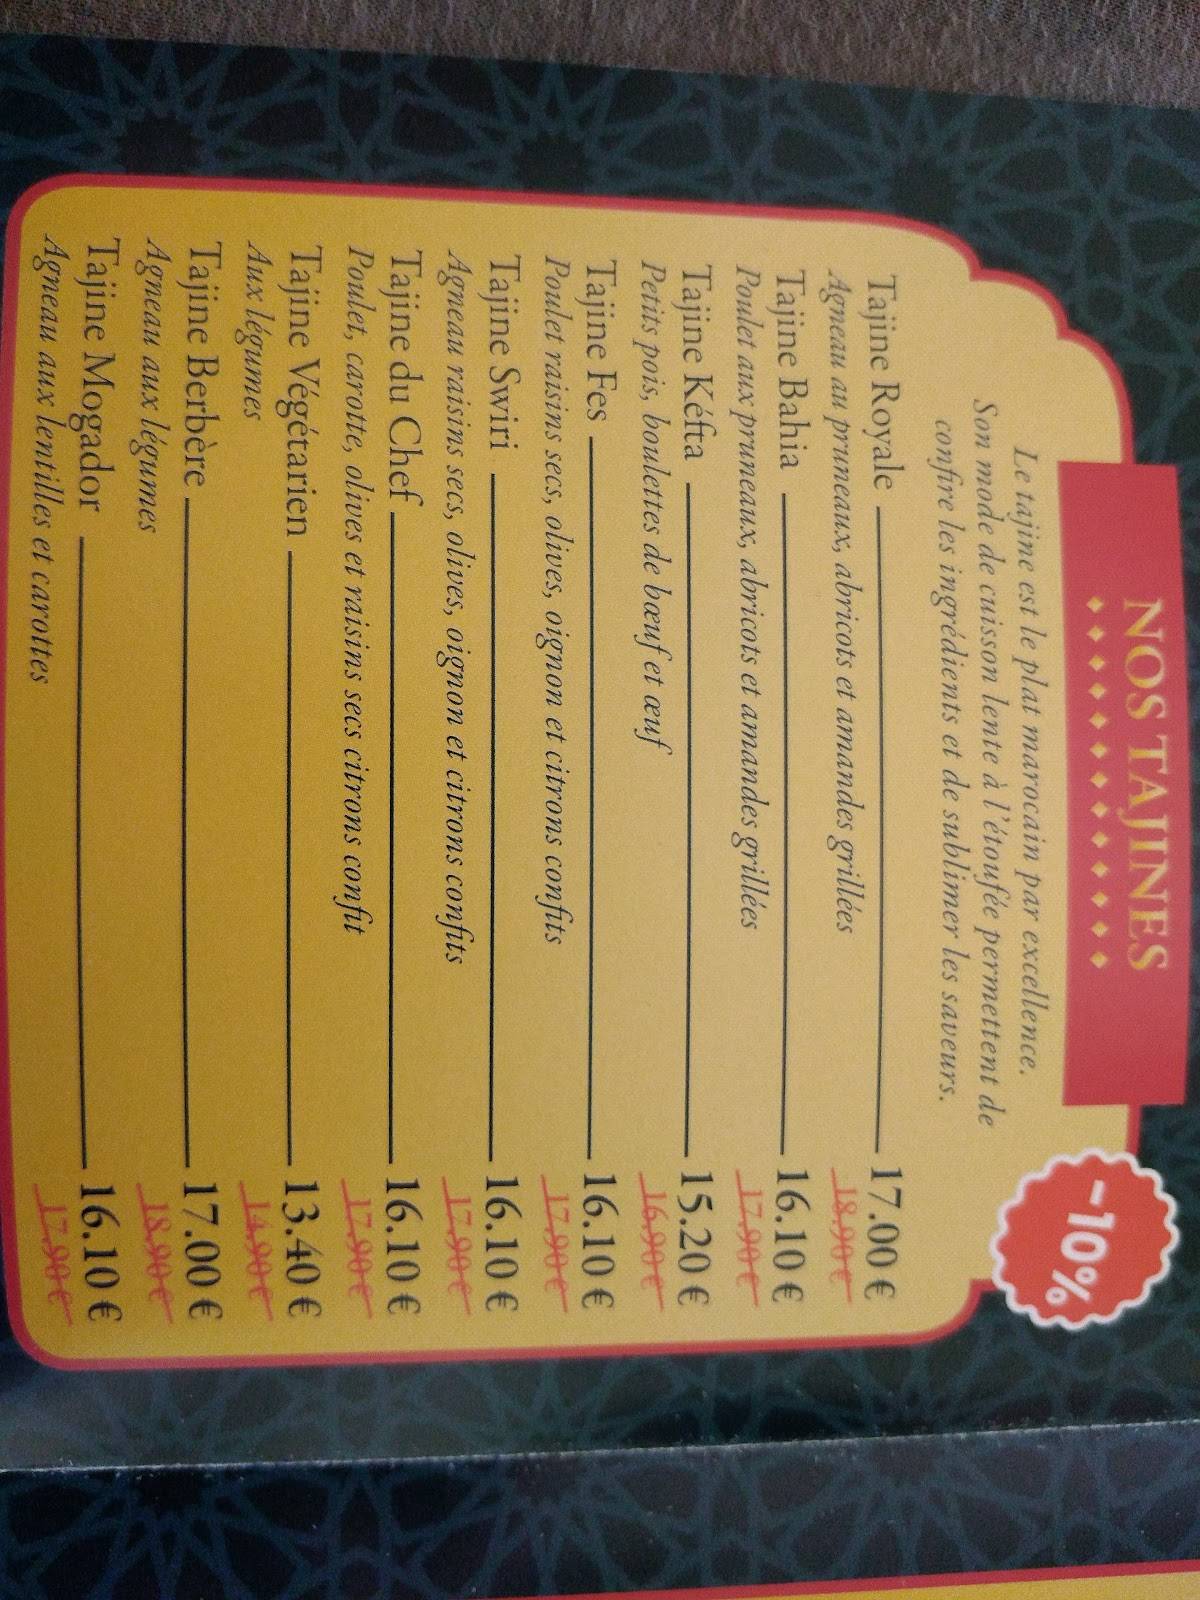 NOS TAJINES
-10%
Le tajine est le plat marocain par excellence.
Son mode de cuisson lente à l'étoufée permettent de
confire les ingrédients et de sublimer les saveurs.
Tajine Royale 17.00 €
Agneau au pruneaux, abricots et amandes grillées 18.90 €
Tajine Bahia 16.10 €
Poulet aux pruneaux, abricots et amandes grillées 17.90 €
Tajine Kéfta 15.20 €
Petits pois, boulettes de bœuf et œuf 16.90 €
Tajine Fes 16.10 €
Poulet raisins secs, olives, oignon et citrons confits 17.90 €
Tajine Swiri 16.10 €
Agneau raisins secs, olives, oignon et citrons confits 17.90 €
Tajine du Chef 16.10 €
Poulet, carotte, olives et raisins secs citrons confit 17.90 €
Tajine Végétarien 13.40 €
Aux légumes 14.90 €
Tajine Berbère 17.00 €
Agneau aux légumes 18.90 €
Tajine Mogador 16.10 €
Agneau aux lentilles et carottes 17.90 €